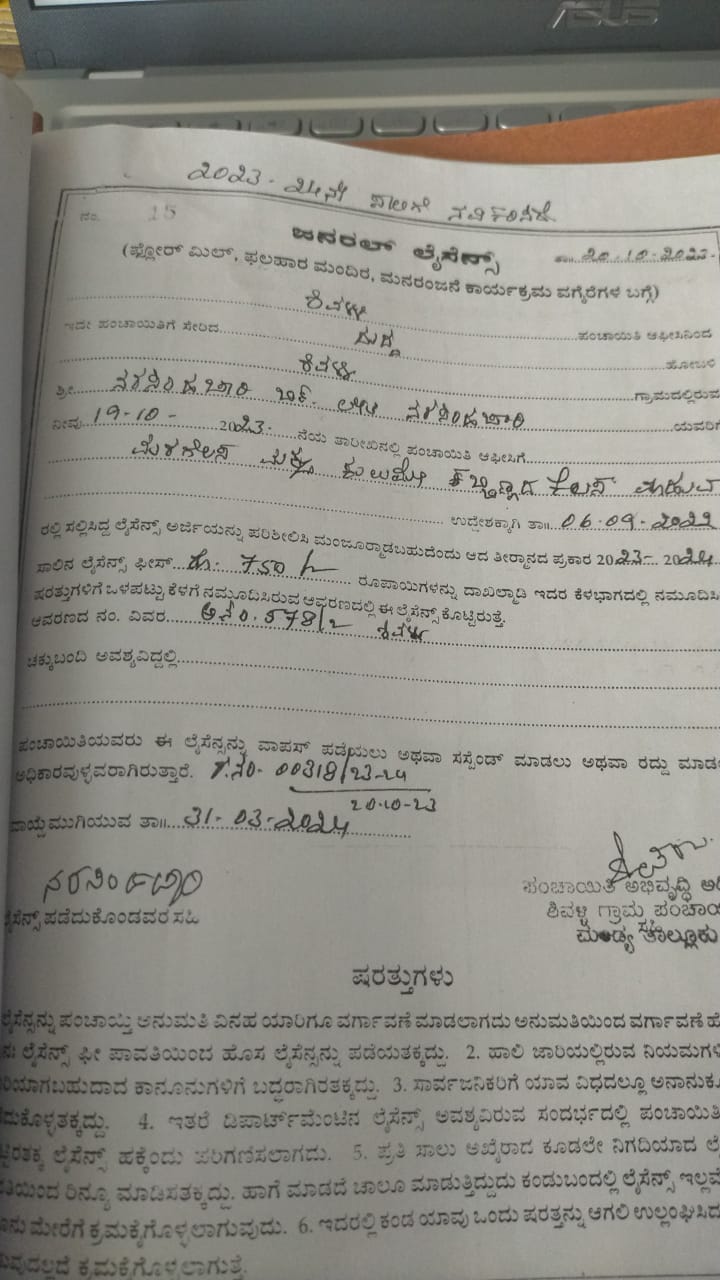 ASUS
2023-24ನೇ ಸಾಲಿಗೆ ನವೀಕರಿಸಿದೆ
ನಂ. 15
ಜನರಲ್ ಲೈಸೆನ್ಸ್
ತಾ॥ 20.10.2023
(ಫ್ಲೋರ್ ಮಿಲ್, ಫಲಹಾರ ಮಂದಿರ, ಮನರಂಜನೆ ಕಾರ್ಯಕ್ರಮ ವಗೈರೆಗಳ ಬಗ್ಗೆ)
ಶಿವಳ್ಳಿ ಪಂಚಾಯಿತಿ ಆಫೀಸಿನಿಂದ
ಇದೇ ಪಂಚಾಯಿತಿಗೆ ಸೇರಿದ ದುದ್ದ ಹೋಬಳಿ
ಶಿವಳ್ಳಿ ಗ್ರಾಮದಲ್ಲಿರುವ
ಶ್ರೀ ನರಸಿಂಹಚಾರಿ ಬಿನ್ ಲೇಟ್ ನರಸಿಂಹಚಾರಿ ಯವರಿಗೆ
ನೀವು 19-10- 2023 ನೆಯ ತಾರೀಖಿನಲ್ಲಿ ಪಂಚಾಯಿತಿ ಆಫೀಸಿಗೆ
ಮರಗೆಲಸ ಮತ್ತು ಕುಲುಮೆ ಕಬ್ಬಿಣ್ಣದ ಕೆಲಸ ಮಾಡುವ
ಉದ್ದೇಶಕ್ಕಾಗಿ ತಾ॥ 06.09-2022
ರಲ್ಲಿ ಸಲ್ಲಿಸಿದ್ದ ಲೈಸೆನ್ಸ್ ಅರ್ಜಿಯನ್ನು ಪರಿಶೀಲಿಸಿ ಮಂಜೂರ್ಮಾಡಬಹುದೆಂದು ಆದ ತೀರ್ಮಾನದ ಪ್ರಕಾರ 2023- 2024
ಸಾಲಿನ ಲೈಸೆನ್ಸ್ ಫೀಸ್ ರೂ. 750/- ರೂಪಾಯಿಗಳನ್ನು ದಾಖಲ್ಮಾಡಿ ಇದರ ಕೆಳಭಾಗದಲ್ಲಿ ನಮೂದಿಸಿ
ಷರತ್ತುಗಳಿಗೆ ಒಳಪಟ್ಟು ಕೆಳಗೆ ನಮೂದಿಸಿರುವ ಆವರಣದಲ್ಲಿ ಈ ಲೈಸೆನ್ಸ್ ಕೊಟ್ಟಿರುತ್ತೆ.
ಆವರಣದ ನಂ. ವಿವರ ಆನಂ. 578/2 ಶಿವಳ್ಳಿ
ಚಕ್ಕುಬಂದಿ ಅವಶ್ಯವಿದ್ದಲ್ಲಿ
ಪಂಚಾಯಿತಿಯವರು ಈ ಲೈಸೆನ್ಸನ್ನು ವಾಪಸ್ ಪಡೆಯಲು ಅಥವಾ ಸಸ್ಪೆಂಡ್ ಮಾಡಲು ಅಥವಾ ರದ್ದು ಮಾಡ
ಅಧಿಕಾರವುಳ್ಳವರಾಗಿರುತ್ತಾರೆ. ರ.ನಂ- 00318/23-24
20-10-23
ವಾಯ್ದೆಮುಗಿಯುವ ತಾ॥ 31-03-2024
ಲೈಸೆನ್ಸ್ ಪಡೆದುಕೊಂಡವರ ಸಹಿ
ಪಂಚಾಯಿತಿ ಅಭಿವೃದ್ಧಿ ಅಧಿ
ಶಿವಳ್ಳಿ ಗ್ರಾಮ ಪಂಚಾಯ
ಮಂಡ್ಯ ತಾಲ್ಲೂಕು
ಷರತ್ತುಗಳು
ಲೈಸೆನ್ಸನ್ನು ಪಂಚಾಯ್ತಿ ಅನುಮತಿ ವಿನಹ ಯಾರಿಗೂ ವರ್ಗಾವಣೆ ಮಾಡಲಾಗದು ಅನುಮತಿಯಿಂದ ವರ್ಗಾವಣೆ ಹೊ
ನಃ ಲೈಸೆನ್ಸ್ ಫೀ ಪಾವತಿಯಿಂದ ಹೊಸ ಲೈಸೆನ್ಸನ್ನು ಪಡೆಯತಕ್ಕದ್ದು. 2. ಹಾಲಿ ಜಾರಿಯಲ್ಲಿರುವ ನಿಯಮಗಳಿ
ರಿಯಾಗಬಹುದಾದ ಕಾನೂನುಗಳಿಗೆ ಬದ್ಧರಾಗಿರತಕ್ಕದ್ದು. 3. ಸಾರ್ವಜನಿಕರಿಗೆ ಯಾವ ವಿಧದಲ್ಲೂ ಅನಾನುಕೂ
ದುಕೊಳ್ಳತಕ್ಕದ್ದು. 4. ಇತರೆ ಡಿಪಾರ್ಟ್‌ಮೆಂಟಿನ ಲೈಸೆನ್ಸ್ ಅವಶ್ಯವಿರುವ ಸಂದರ್ಭದಲ್ಲಿ ಪಂಚಾಯಿತಿ
ಟ್ಟಿರತಕ್ಕ ಲೈಸೆನ್ಸ್ ಹಕ್ಕೆಂದು ಪರಿಗಣಿಸಲಾಗದು. 5. ಪ್ರತಿ ಸಾಲು ಅಖೈರಾದ ಕೂಡಲೇ ನಿಗದಿಯಾದ ಲೈ
ತಿಯಿಂದ ರಿನ್ಯೂ ಮಾಡಿಸತಕ್ಕದ್ದು. ಹಾಗೆ ಮಾಡದೆ ಚಾಲೂ ಮಾಡುತ್ತಿದ್ದುದು ಕಂಡುಬಂದಲ್ಲಿ ಲೈಸೆನ್ಸ್ ಇಲ್ಲವೆ
ನು ಮೇರೆಗೆ ಕ್ರಮಕೈಗೊಳ್ಳಲಾಗುವುದು. 6. ಇದರಲ್ಲಿ ಕಂಡ ಯಾವು ಒಂದು ಷರತ್ತನ್ನು ಆಗಲಿ ಉಲ್ಲಂಘಿಸಿದ
ವುದಲ್ಲದೆ ಕ್ರಮಕೈಗೊಳ್ಳಲಾಗುತ್ತೆ.